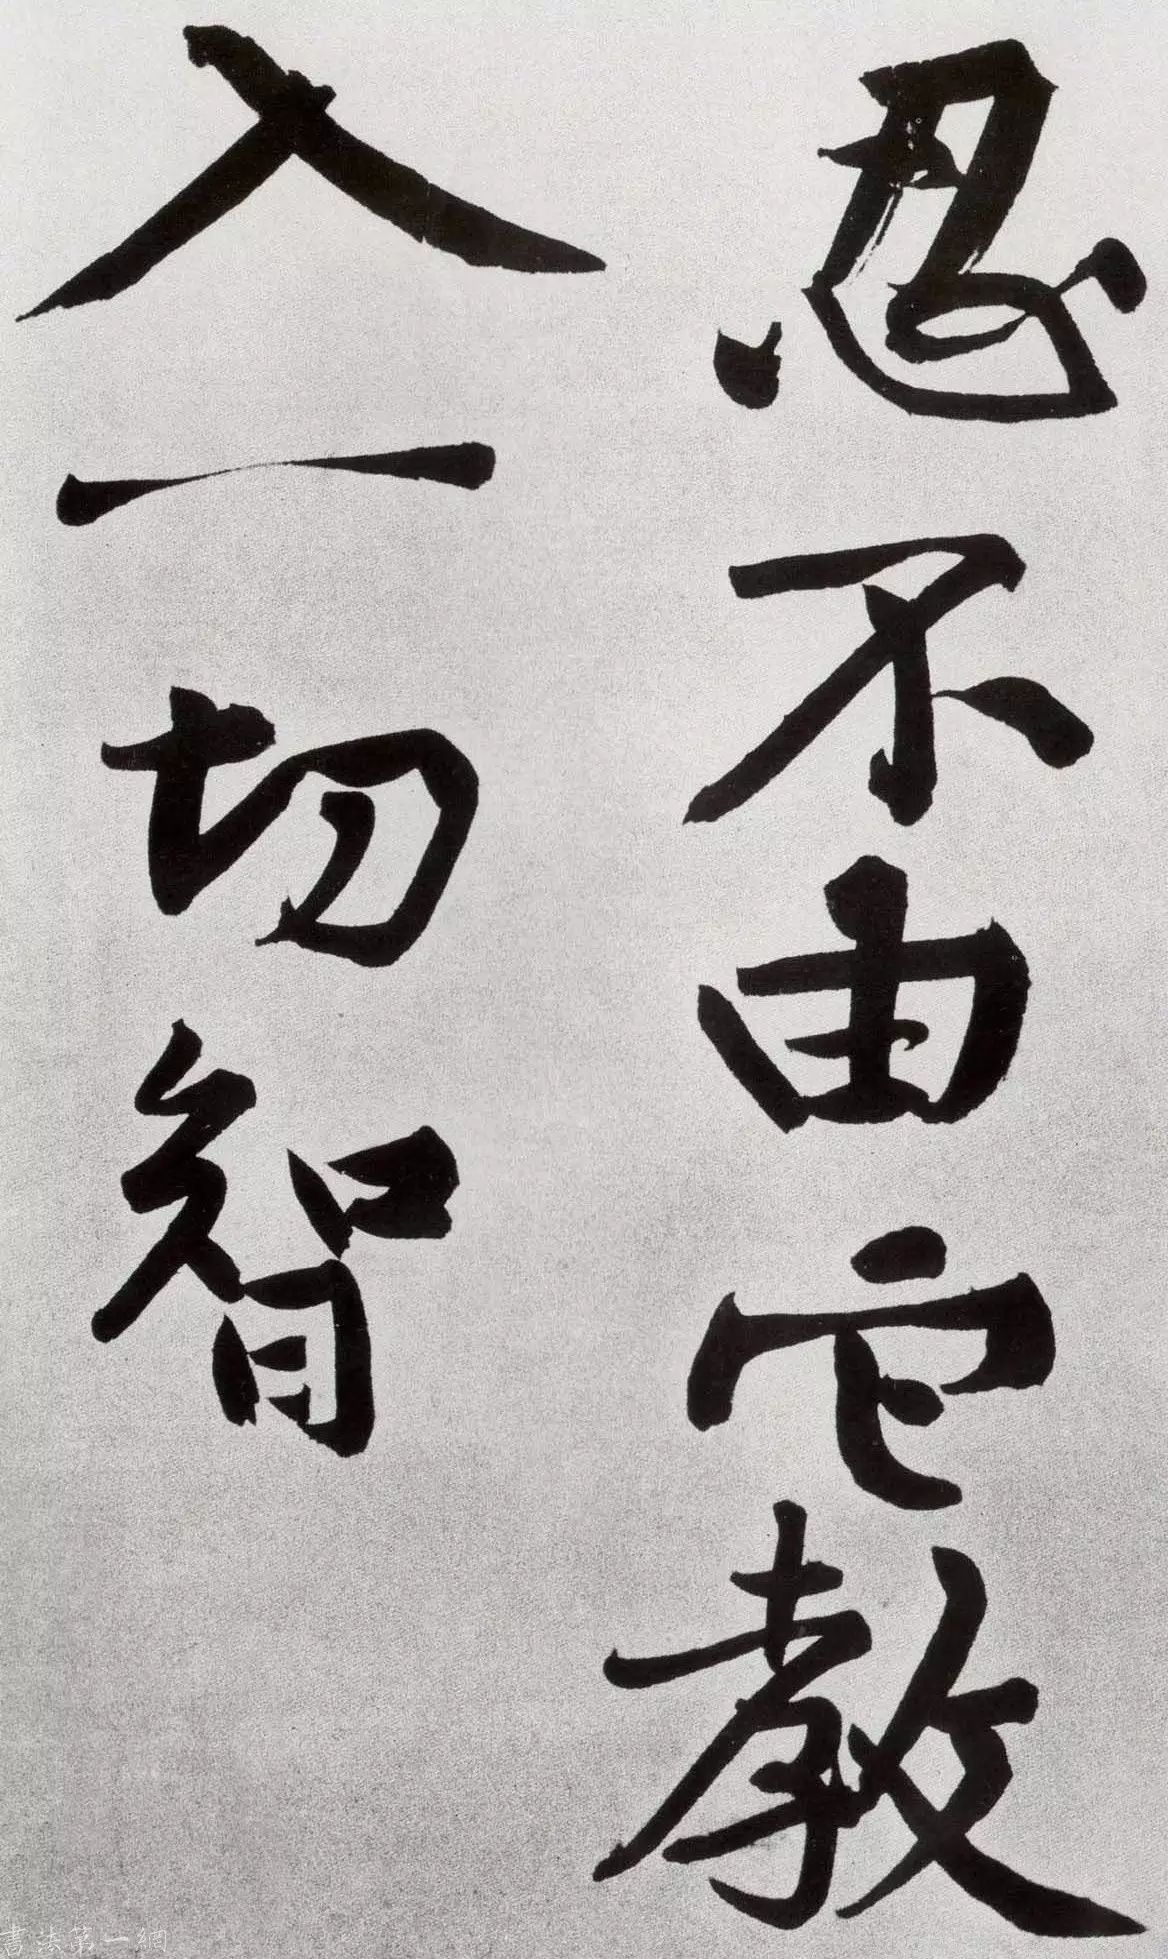 忍不由它教
入一切智
書法第一網